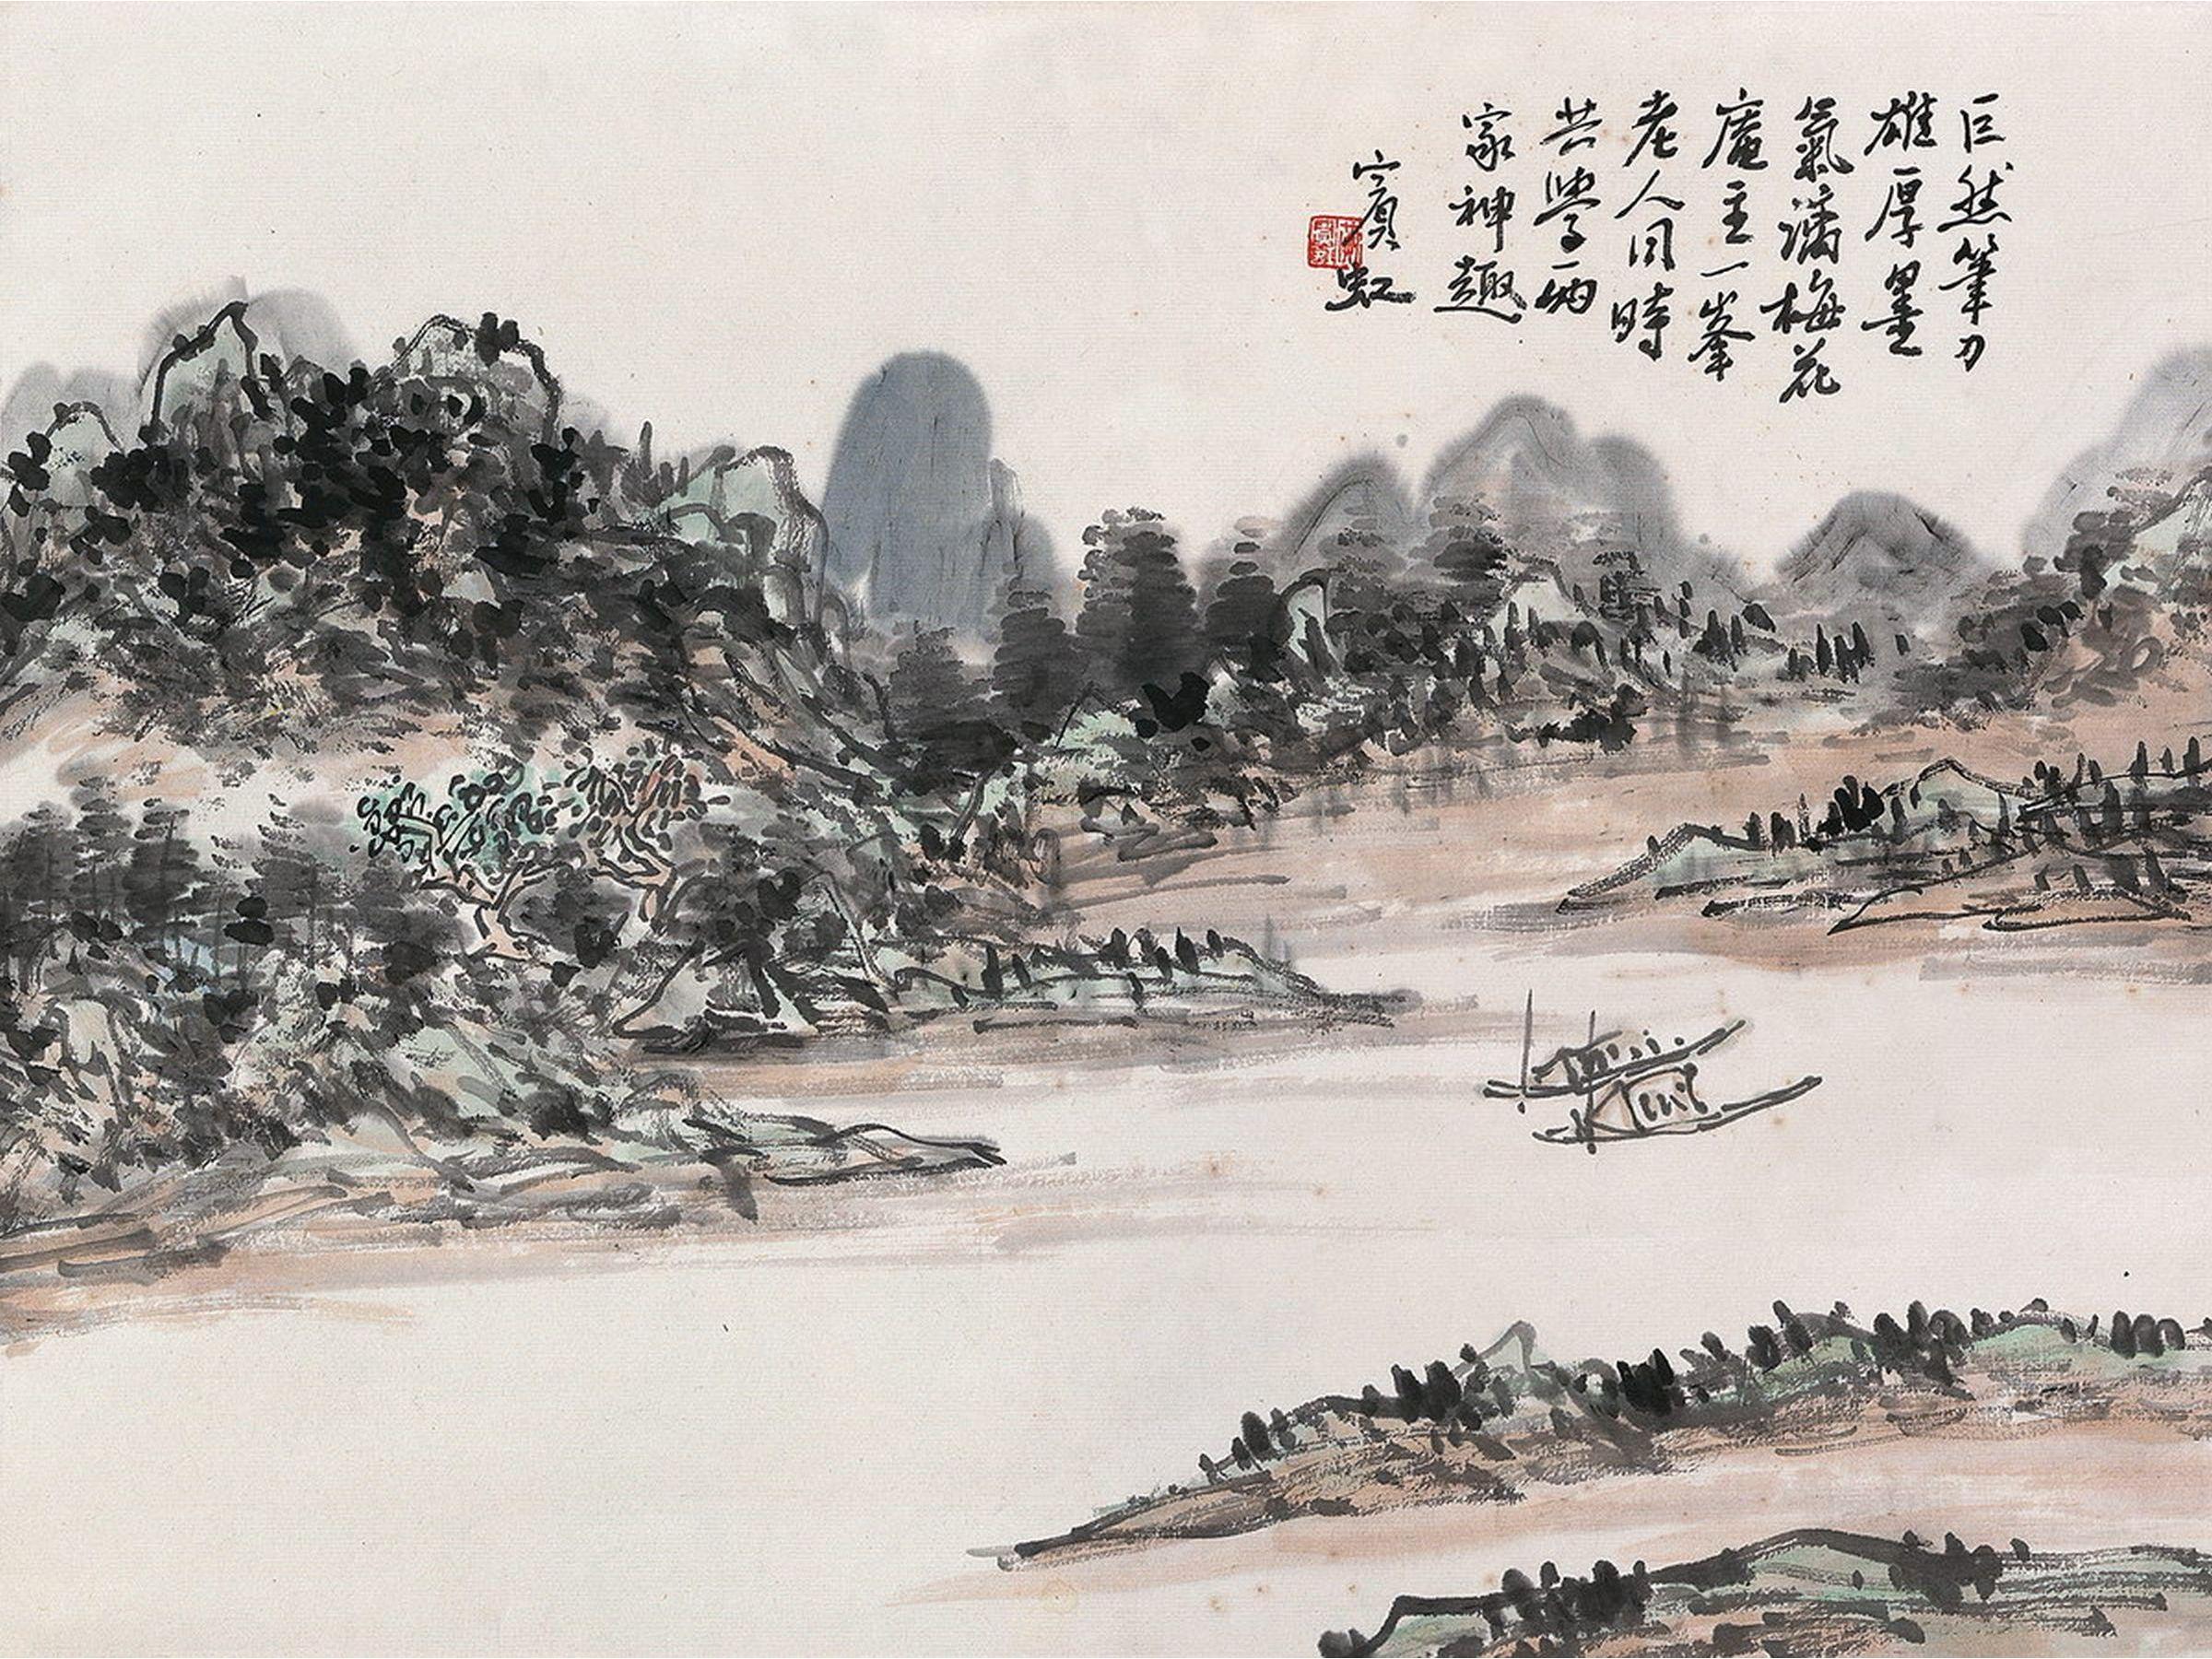 巨然筆力
雄厚墨
氣滿梅花
庵主一峯
老人同時
共學兩
家神趣
賓虹